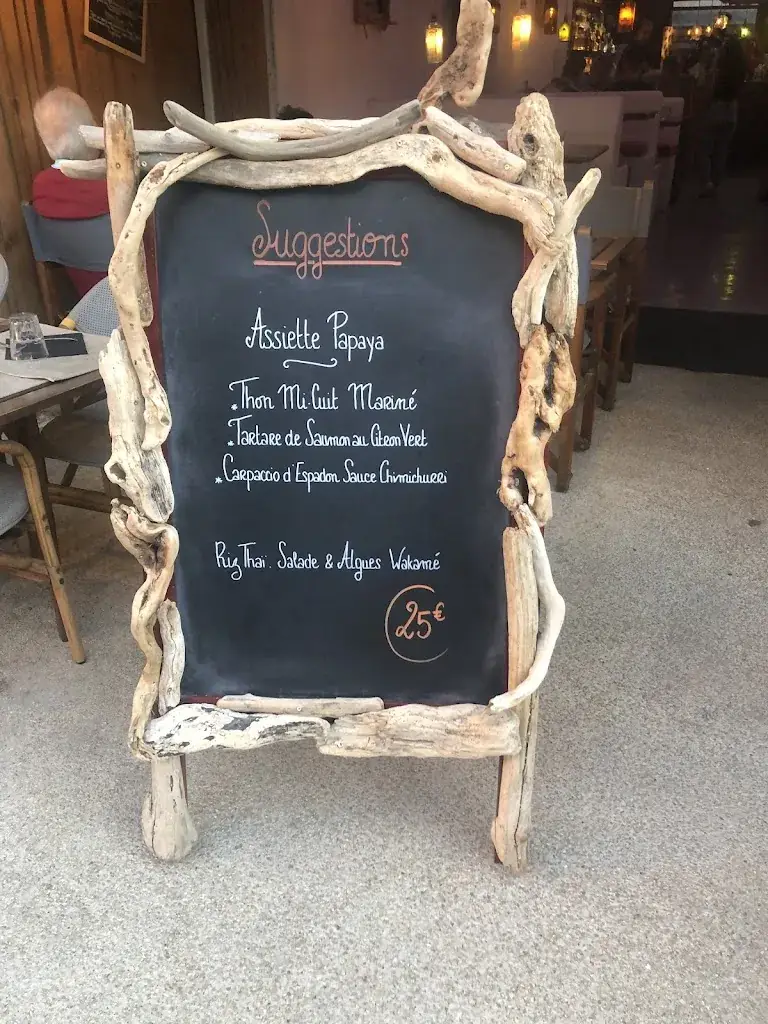 Suggestions
Assiette Papaya
* Thon Mi-Cuit Mariné
* Tartare de Saumon au Citron Vert
* Carpaccio d'Espadon Sauce Chimichurri
Riz Thaï. Salade & Algues Wakamé
25€